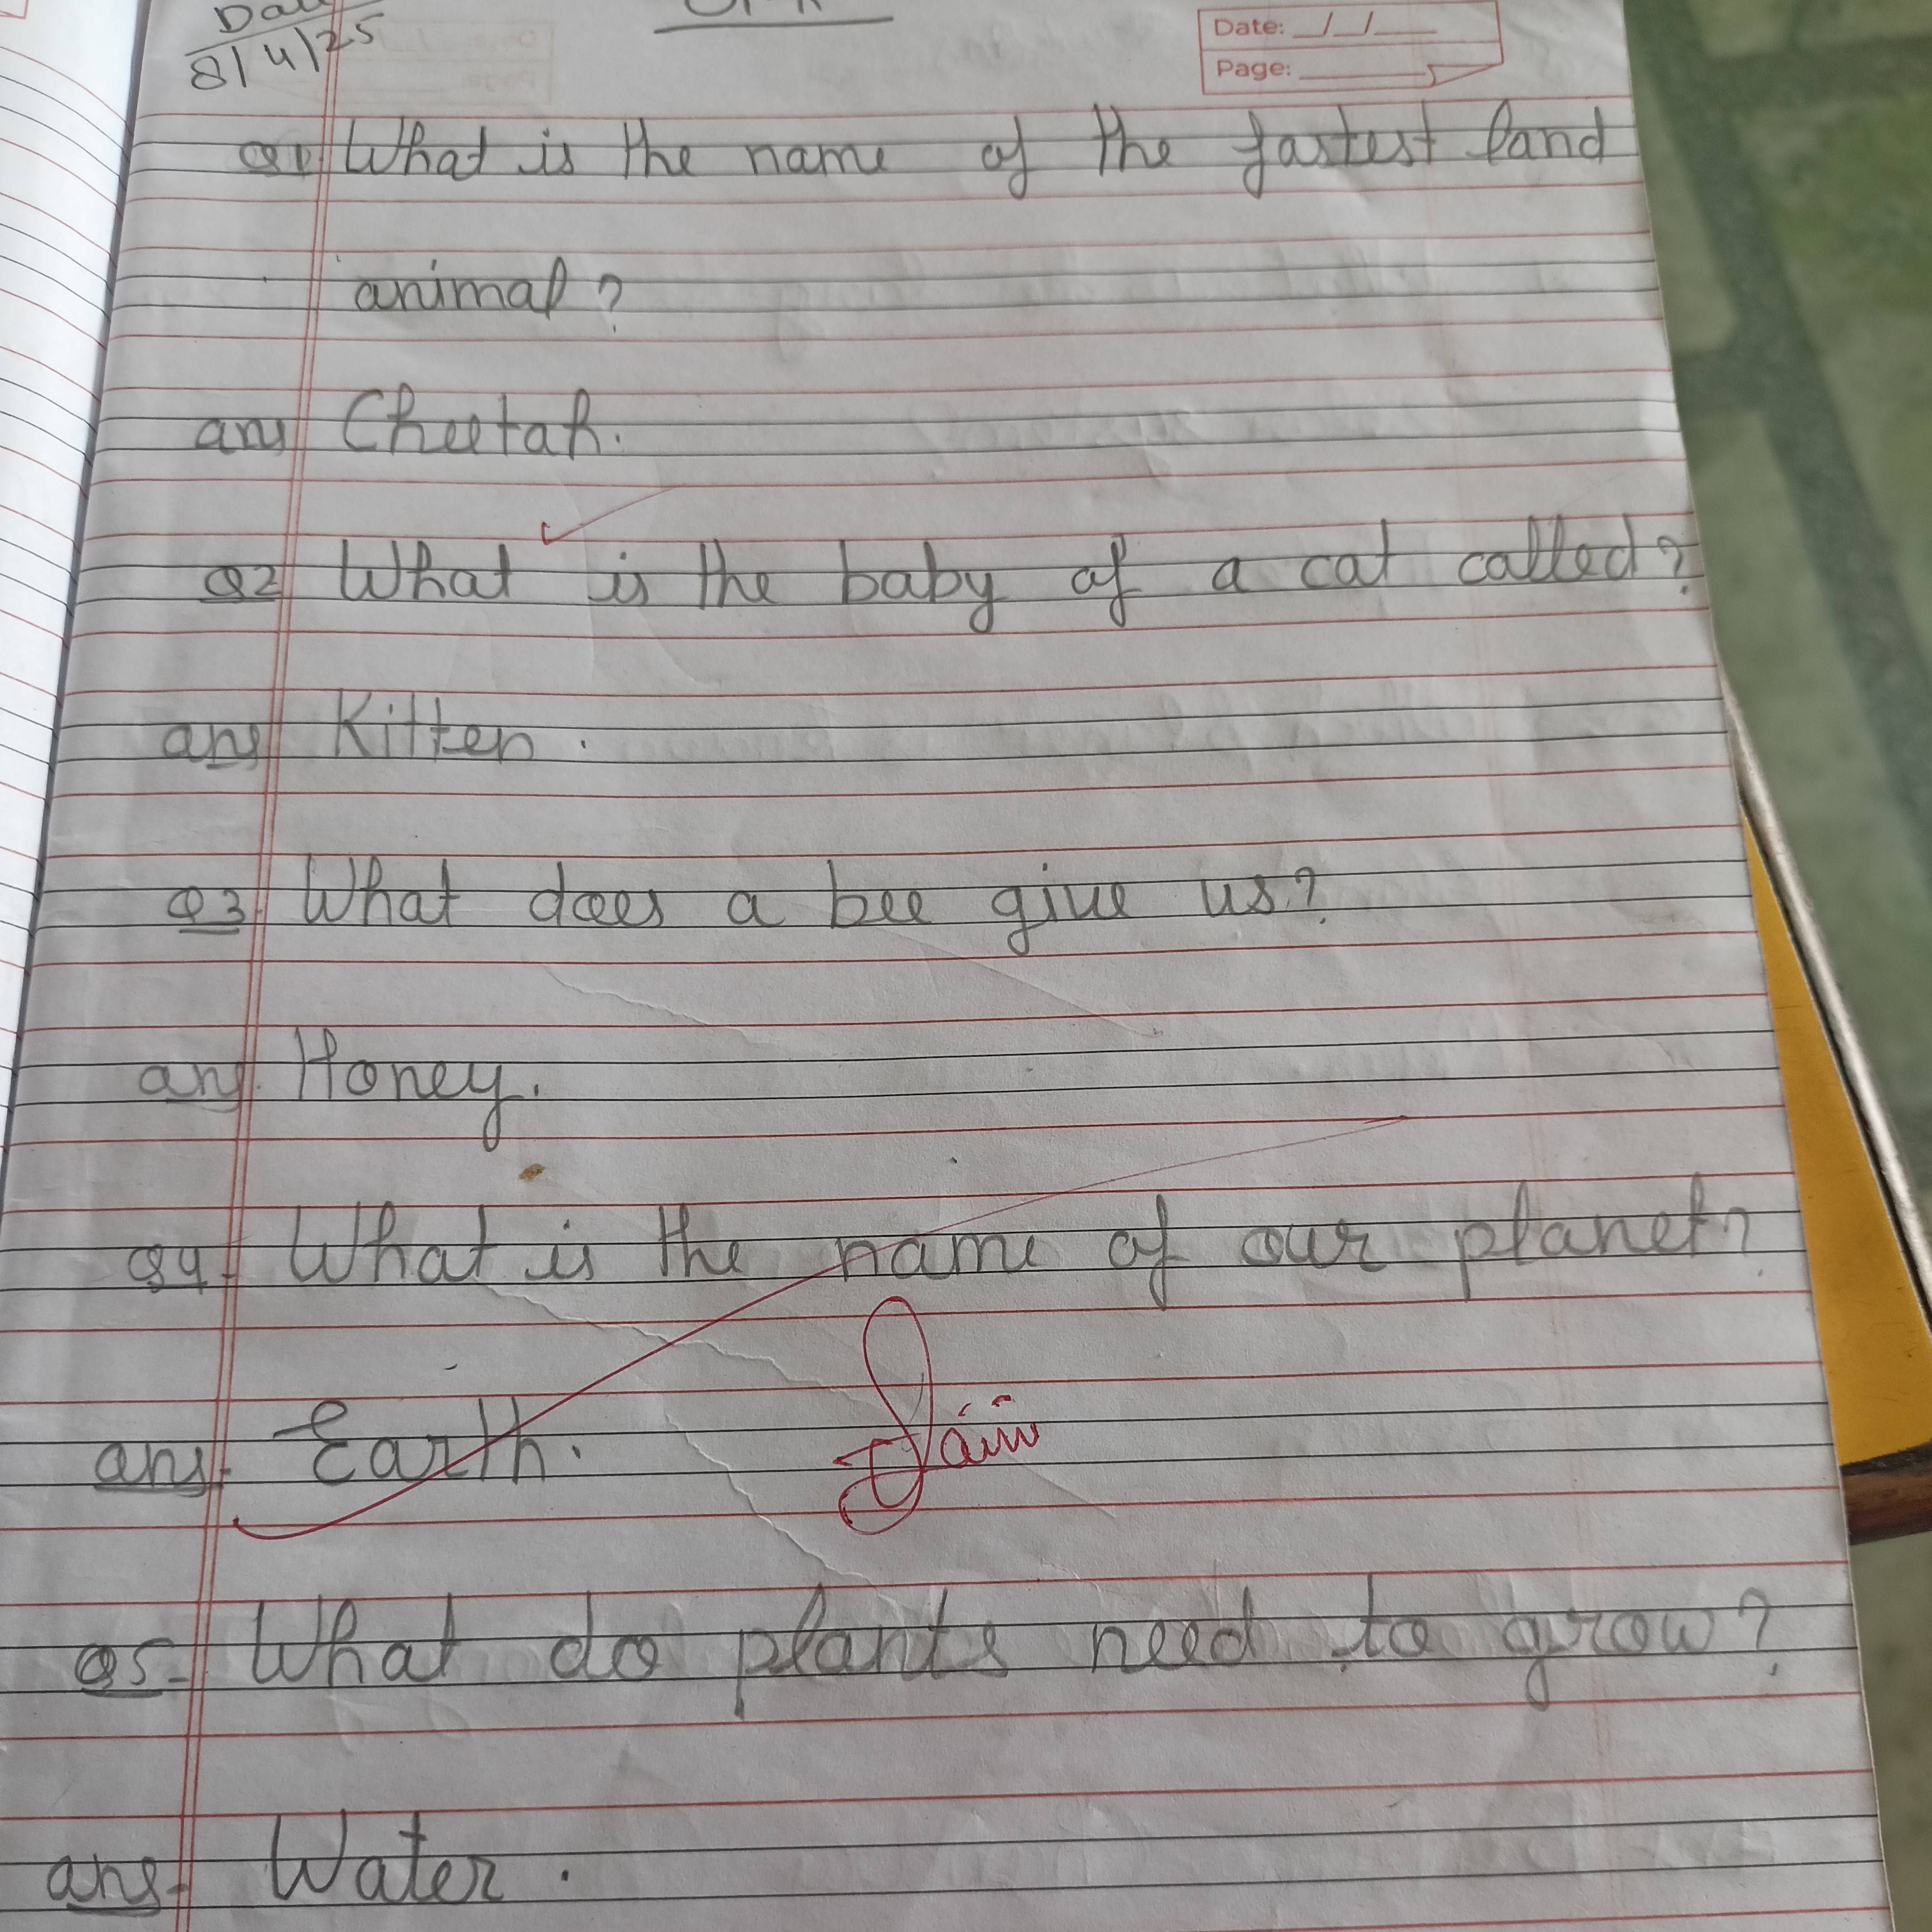 8/4/25
Date: _/_/_
Page:
Q1 What is the name of the fastest land
animal?
ans Cheetah.
Q2 What is the baby of a cat called?
ans Kitten.
Q3 What does a bee give us?
ans. Honey.
Q4- What is the name of our planet?
ans- Earth.
Q5- What do plants need to grow?
ans- Water.